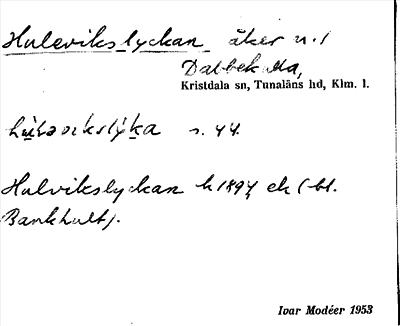 Hulevikslyckan åker n. 1
Dalbek
Kristdala sn, Tunaläns hd, Klm. l.
s. 44.
Hulvikslyckan k 1897 ek (bl.
Bankhult).
Ivar Modéer 1953